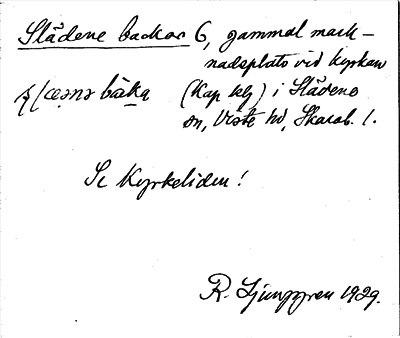 Slädene backar 6, gammal mark-
nadsplats vid kyrkan
bàka̠ (Kap. klg) i Slädene
sn, Viste hd, Skarab. l.
Se Kyrkeliden!
R. Ljunggren 1929.